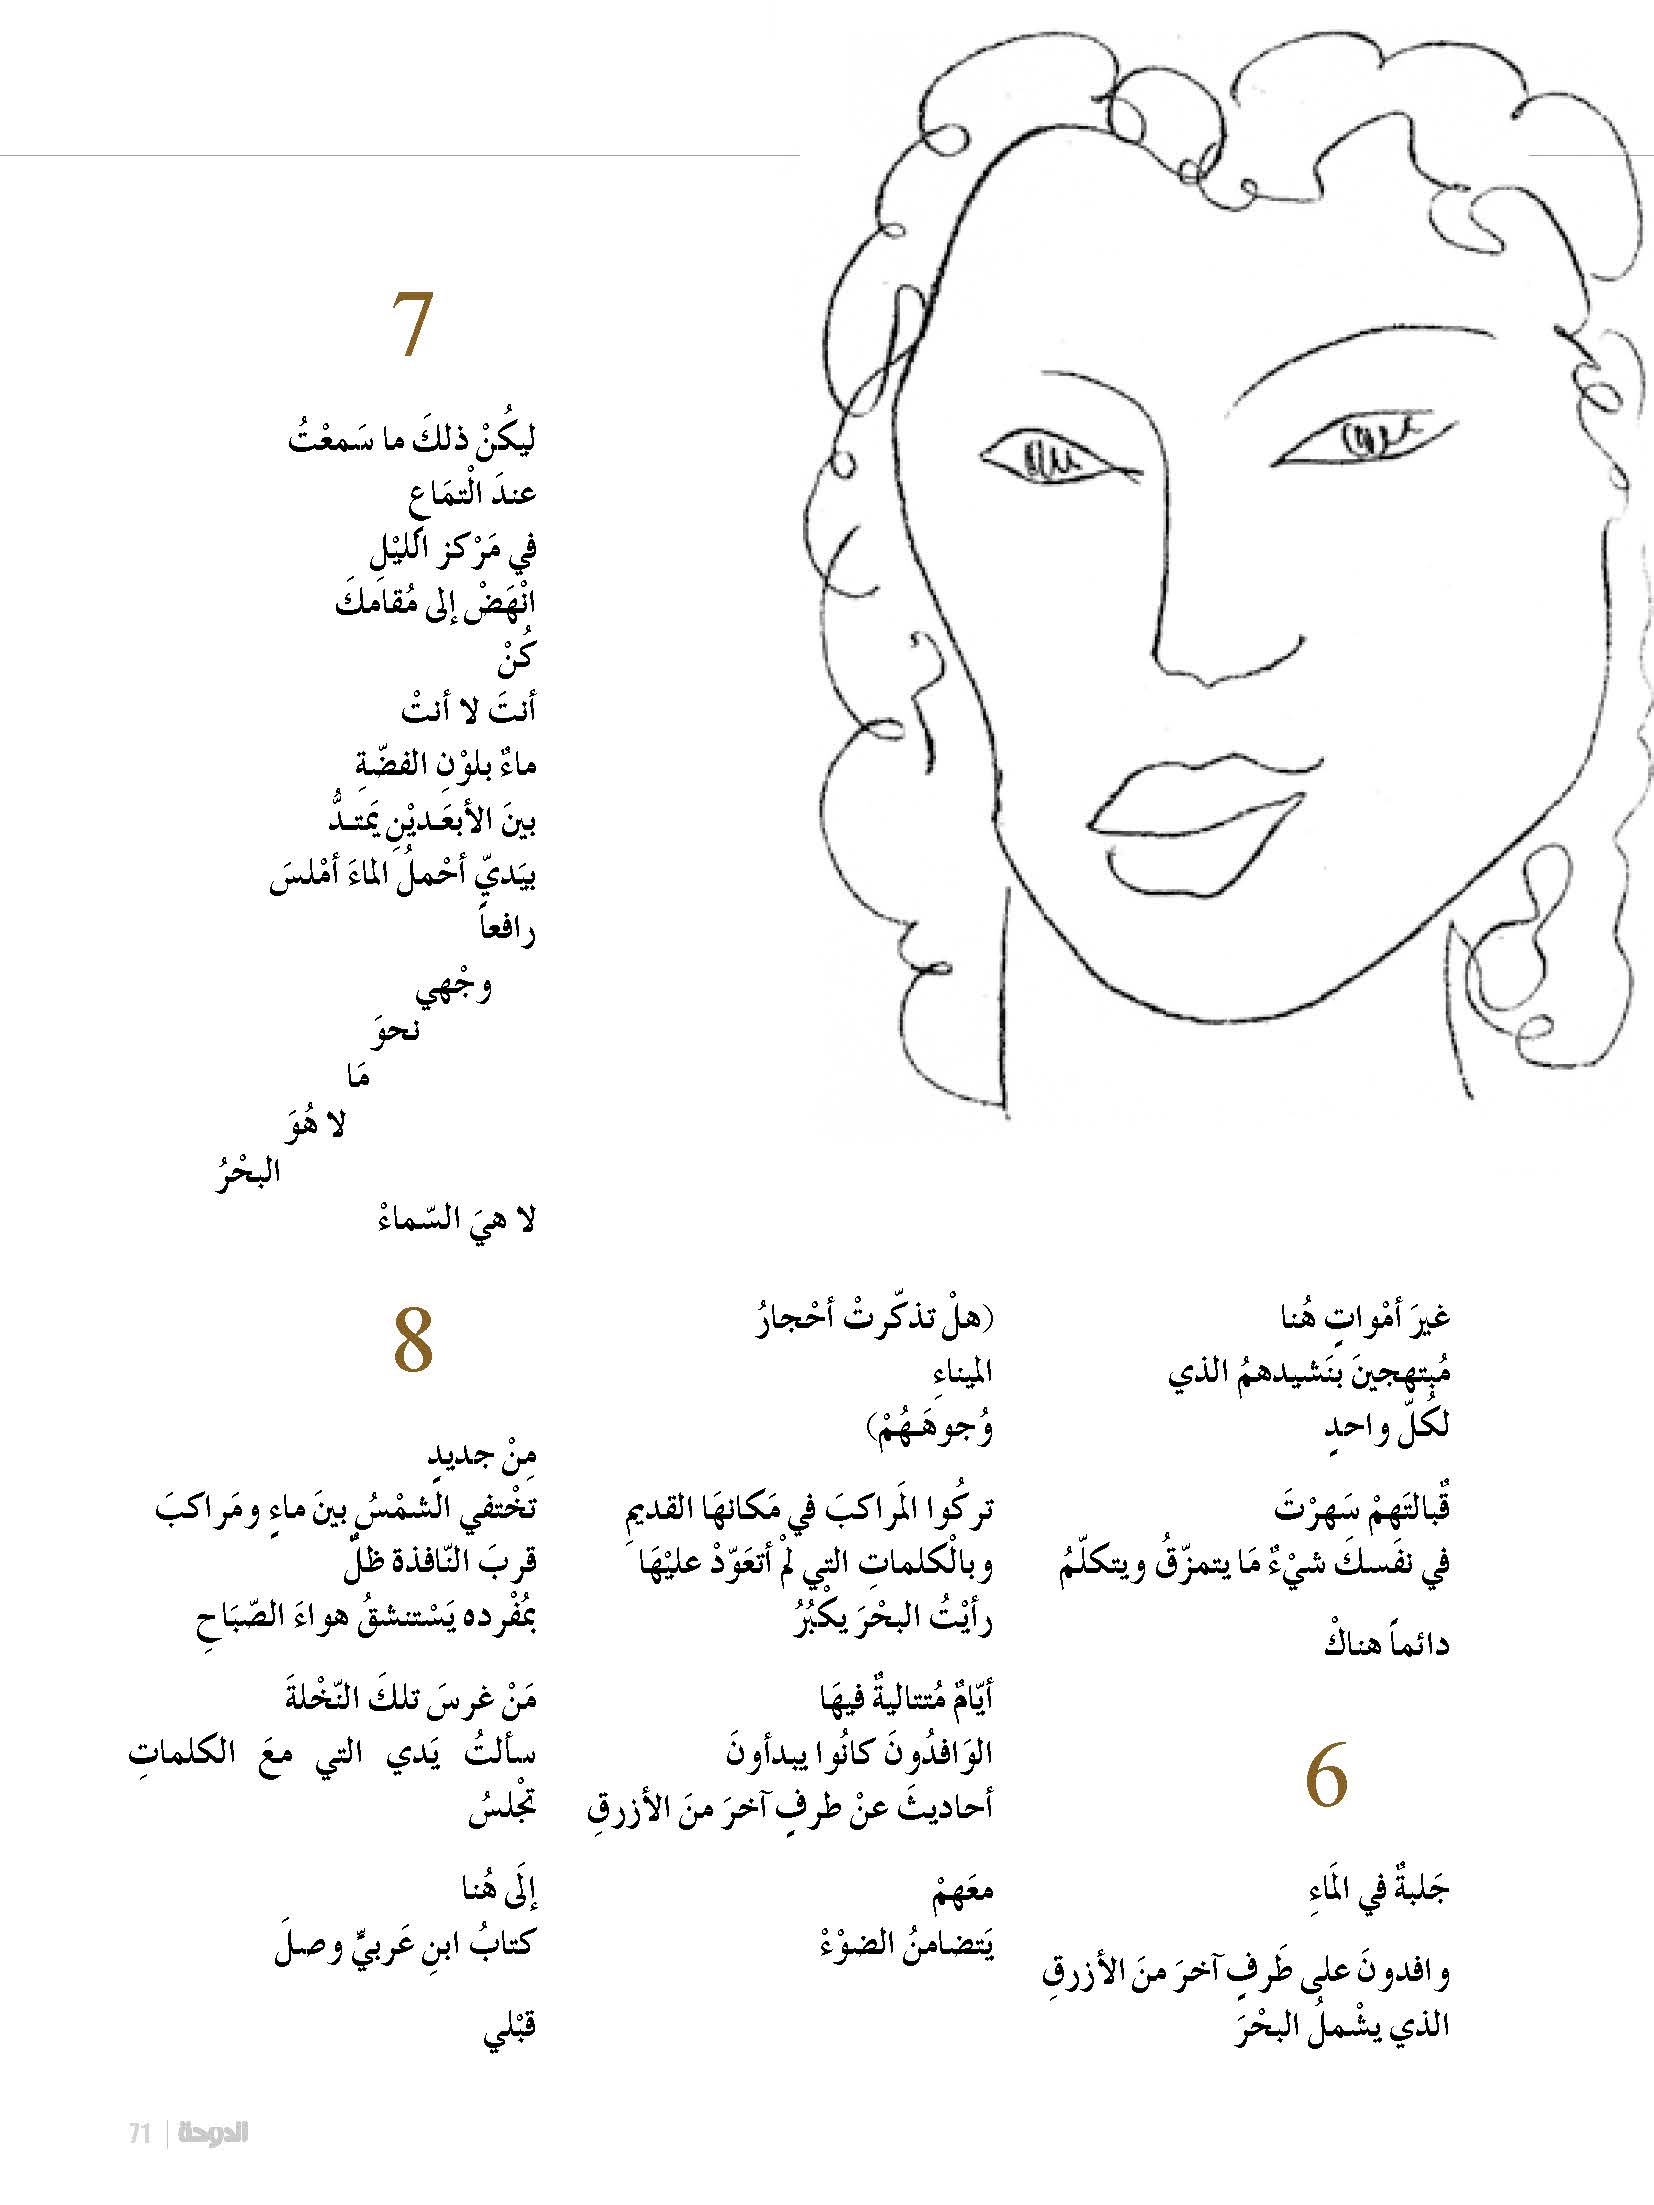 غيرَ أمْواتٍ هُنا
مُبتهجينَ بنَشيدهمُ الذي
لكُلّ واحدٍ
قُبالتَهمْ سَهرْتَ
في نفَسكَ شيْءٌ مَا يتمزّقُ ويتكلّمُ
دائماً هناكْ
6
جَلبةٌ في الَماءِ
وافدونَ على طَرفٍ آخرَ منَ الأزرقِ
الذي يشْملُ البحْرَ
(هلْ تذكّرتْ أحْجارُ
الميناءِ
وُجوهَهُمْ)
تركُوا الَمراكبَ في مَكانهَا القديمِ
وبالْكلماتِ التي لمْ أتعَوّدْ عليْهَا
رأيْتُ البحْرَ يكْبُرُ
أيّامٌ مُتتاليةٌ فيهَا
الوَافدُونَ كانُوا يبدأونَ
أحاديثَ عنْ طرفٍ آخرَ منَ الأزرقِ
معَهمْ
يَتضامنُ الضوْءْ
7
ليكُنْ ذلكَ ما سَمعْتُ
عندَ الْتمَاعٍ
في مَرْكز الليْلِ
انْهَضْ إلى مُقامكَ
كُنْ
أنتَ لا أنتْ
ماءٌ بلوْنِ الفضّةِ
بينَ الأبعَـديْنِ يَمتـدُّ
بيَديّ أحْملُ الماءَ أمْلسَ
رافعاً
وجْهي
نحوَ
مَا
لا هُوَ
البحْرُ
لا هيَ السّماءْ
8
مِنْ جديدٍ
تخْتفي الشمْسُ بينَ ماءٍ ومَراكبَ
قربَ النّافذة ظلٌّ
بمُفْرده يَسْتنشقُ هواءَ الصّبَاحِ
مَنْ غرسَ تلكَ النّخْلةَ
سألتُ يَدي التي معَ الكلماتِ
تجْلسُ
إلَى هُنا
كتابُ ابنِ عَربيٍّ وصلَ
قبْلي
71 | الدوحة